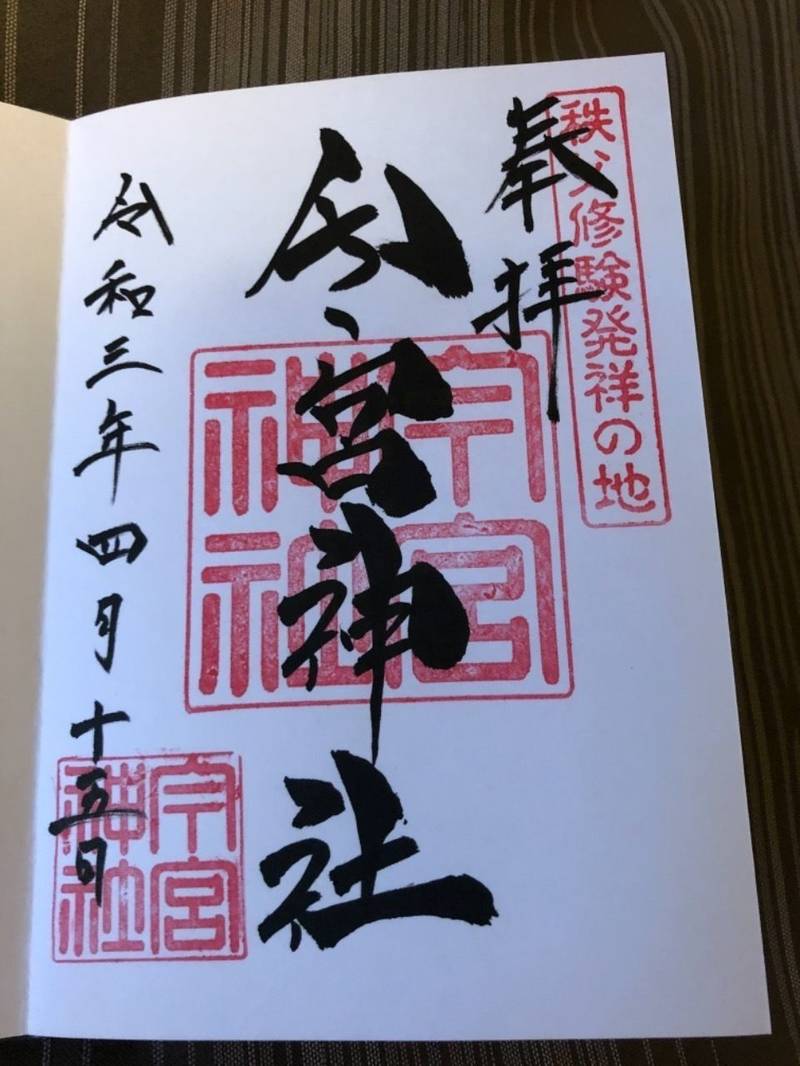 秩父修験発祥の地
奉拝
今宮神社
今宮神社
令和三年四月十五日
今宮神社